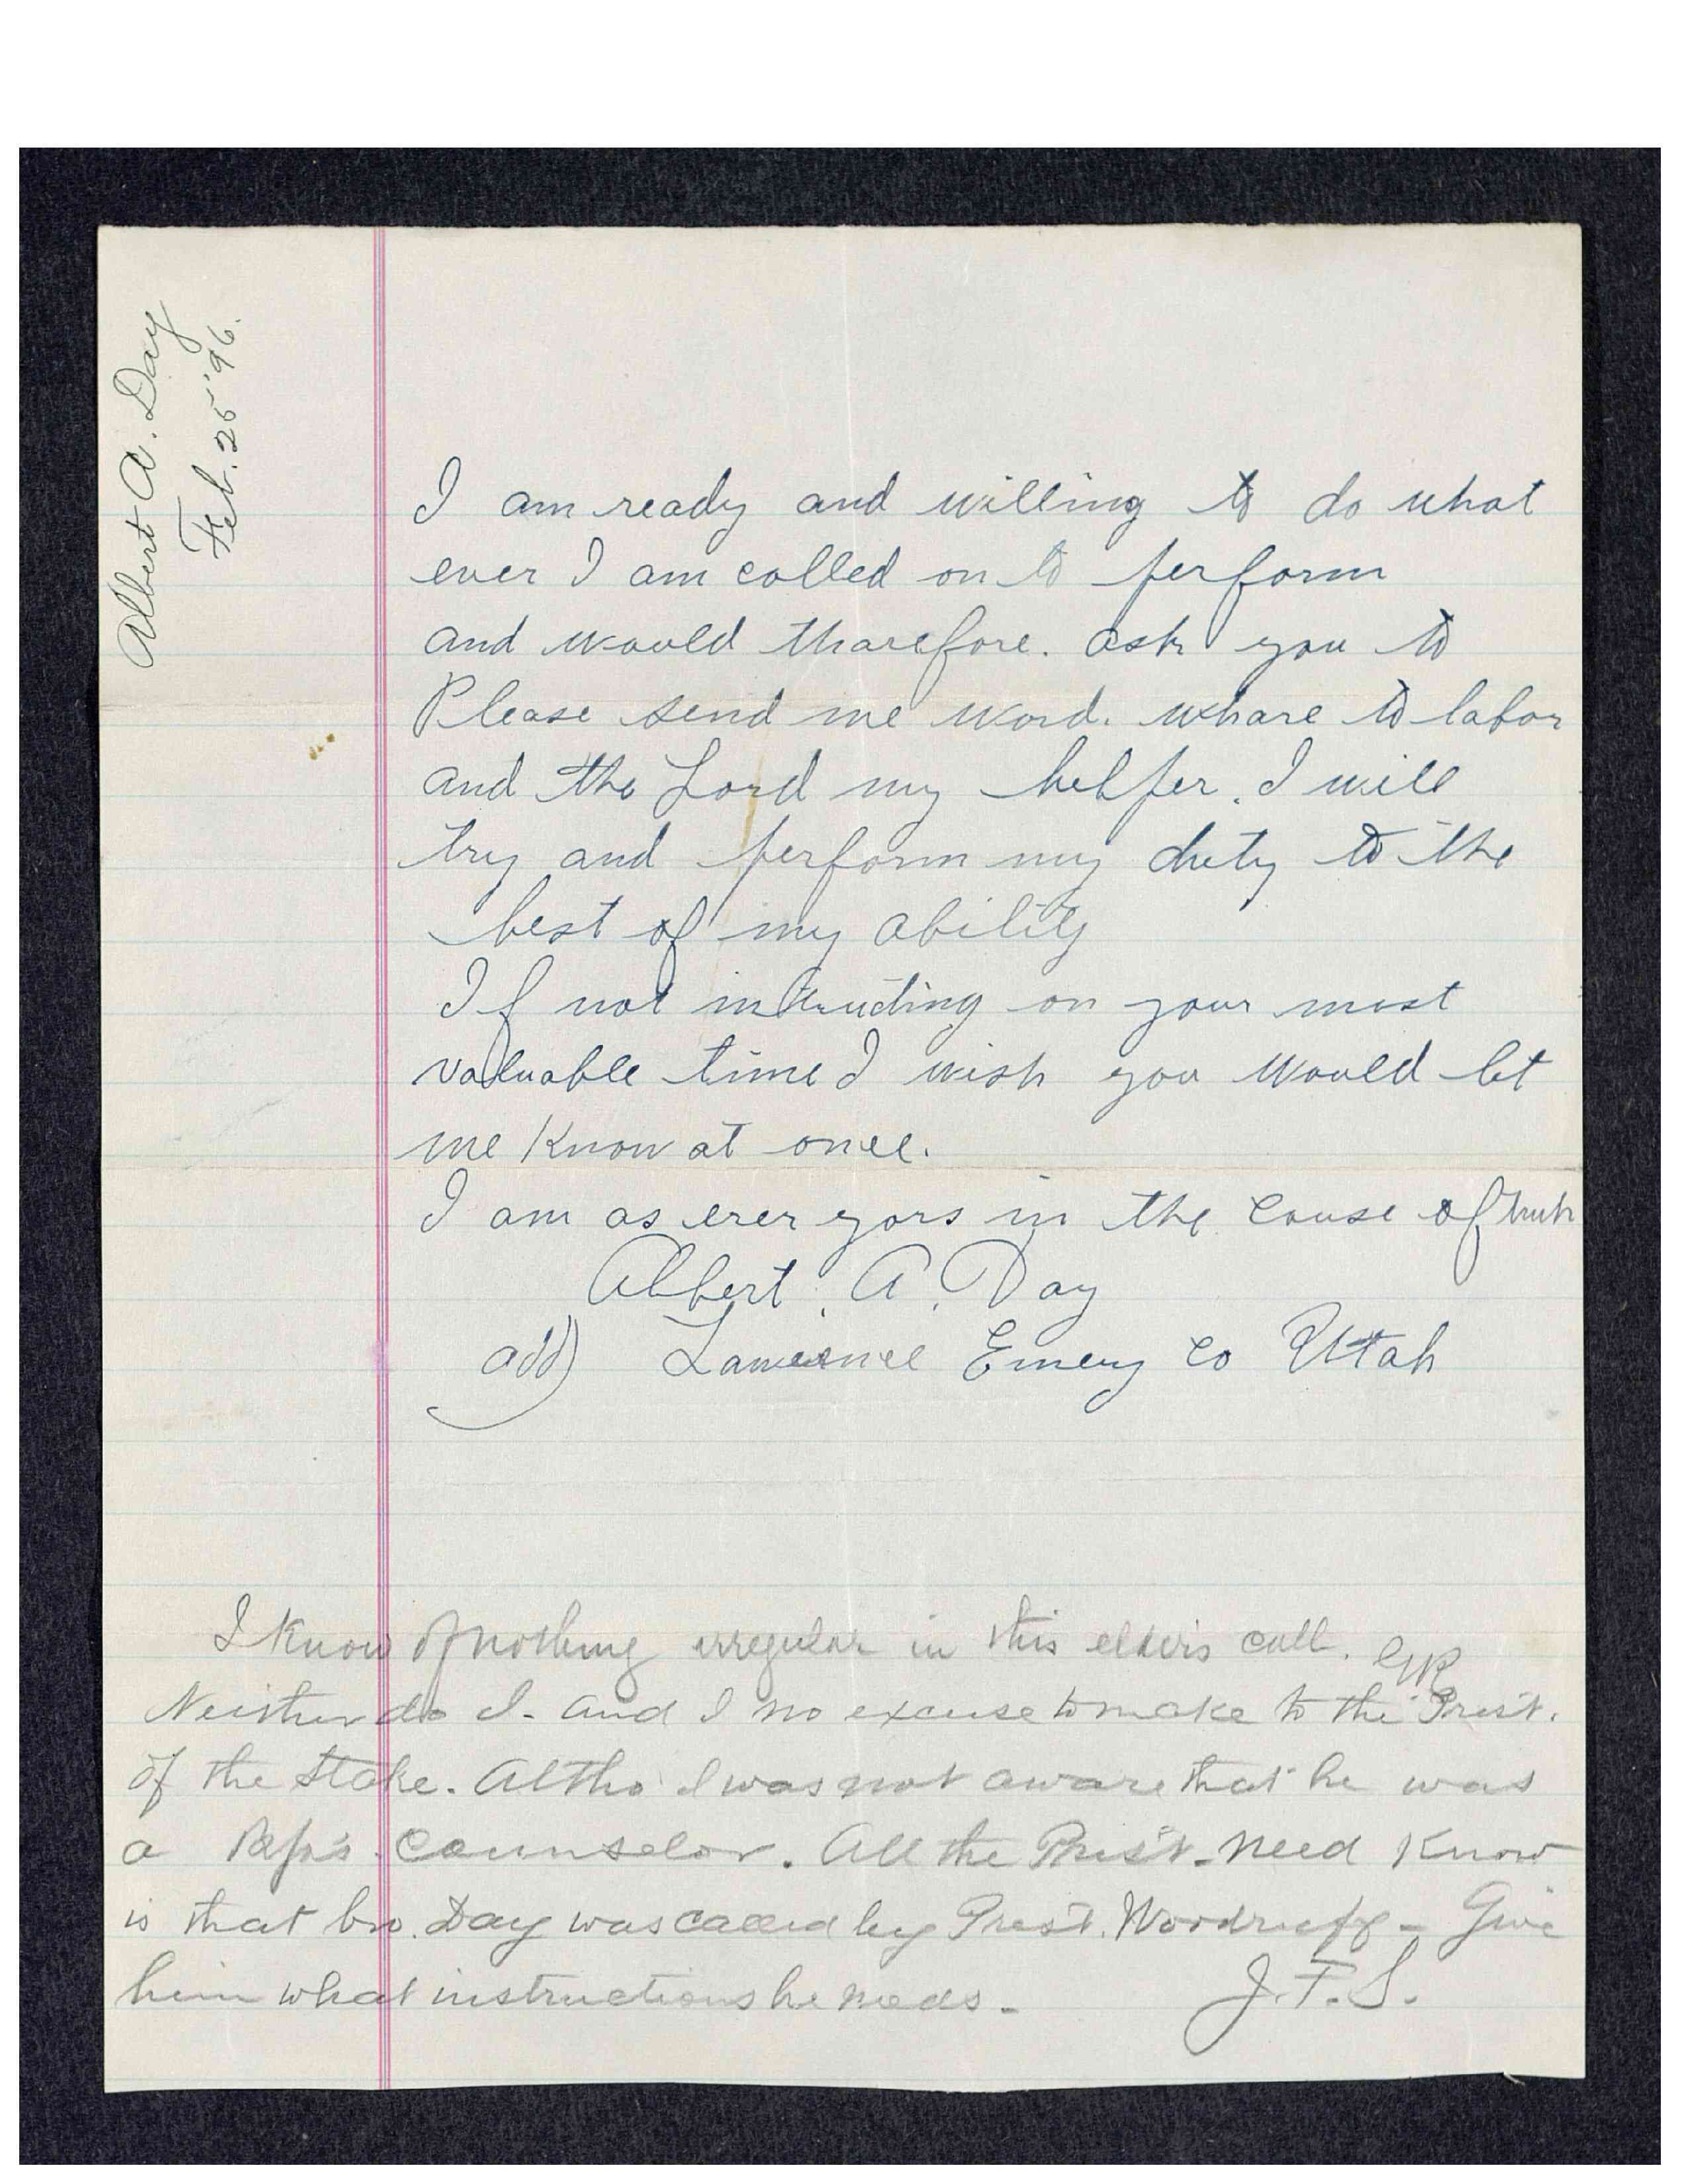 Albert A. Day
Feb. 25 '96.
I am ready and willing to do what
ever I am called on to perform
and would tharefore. ask you to
Please send me word. whare to labor
and the Lord my helper. I will
try and perform my duty to the
best of my ability
If not intruding on your most
valuable time I wish you would let
me Know at once.
I am as ever yors in the cause of truth
Albert. A. Day
add) Lawrence Emery Co Utah
I Know of nothing irregular in this elder's call. GR
Neither do I - and I no excuse to make to the Prest.
of the Stake. Altho' I was not aware that he was
a Bp's. Counselor. All the Prest. need Know
is that bro. Day was called by Prest. Woodruff - Give
him what instructions he needs -
J. F. S.